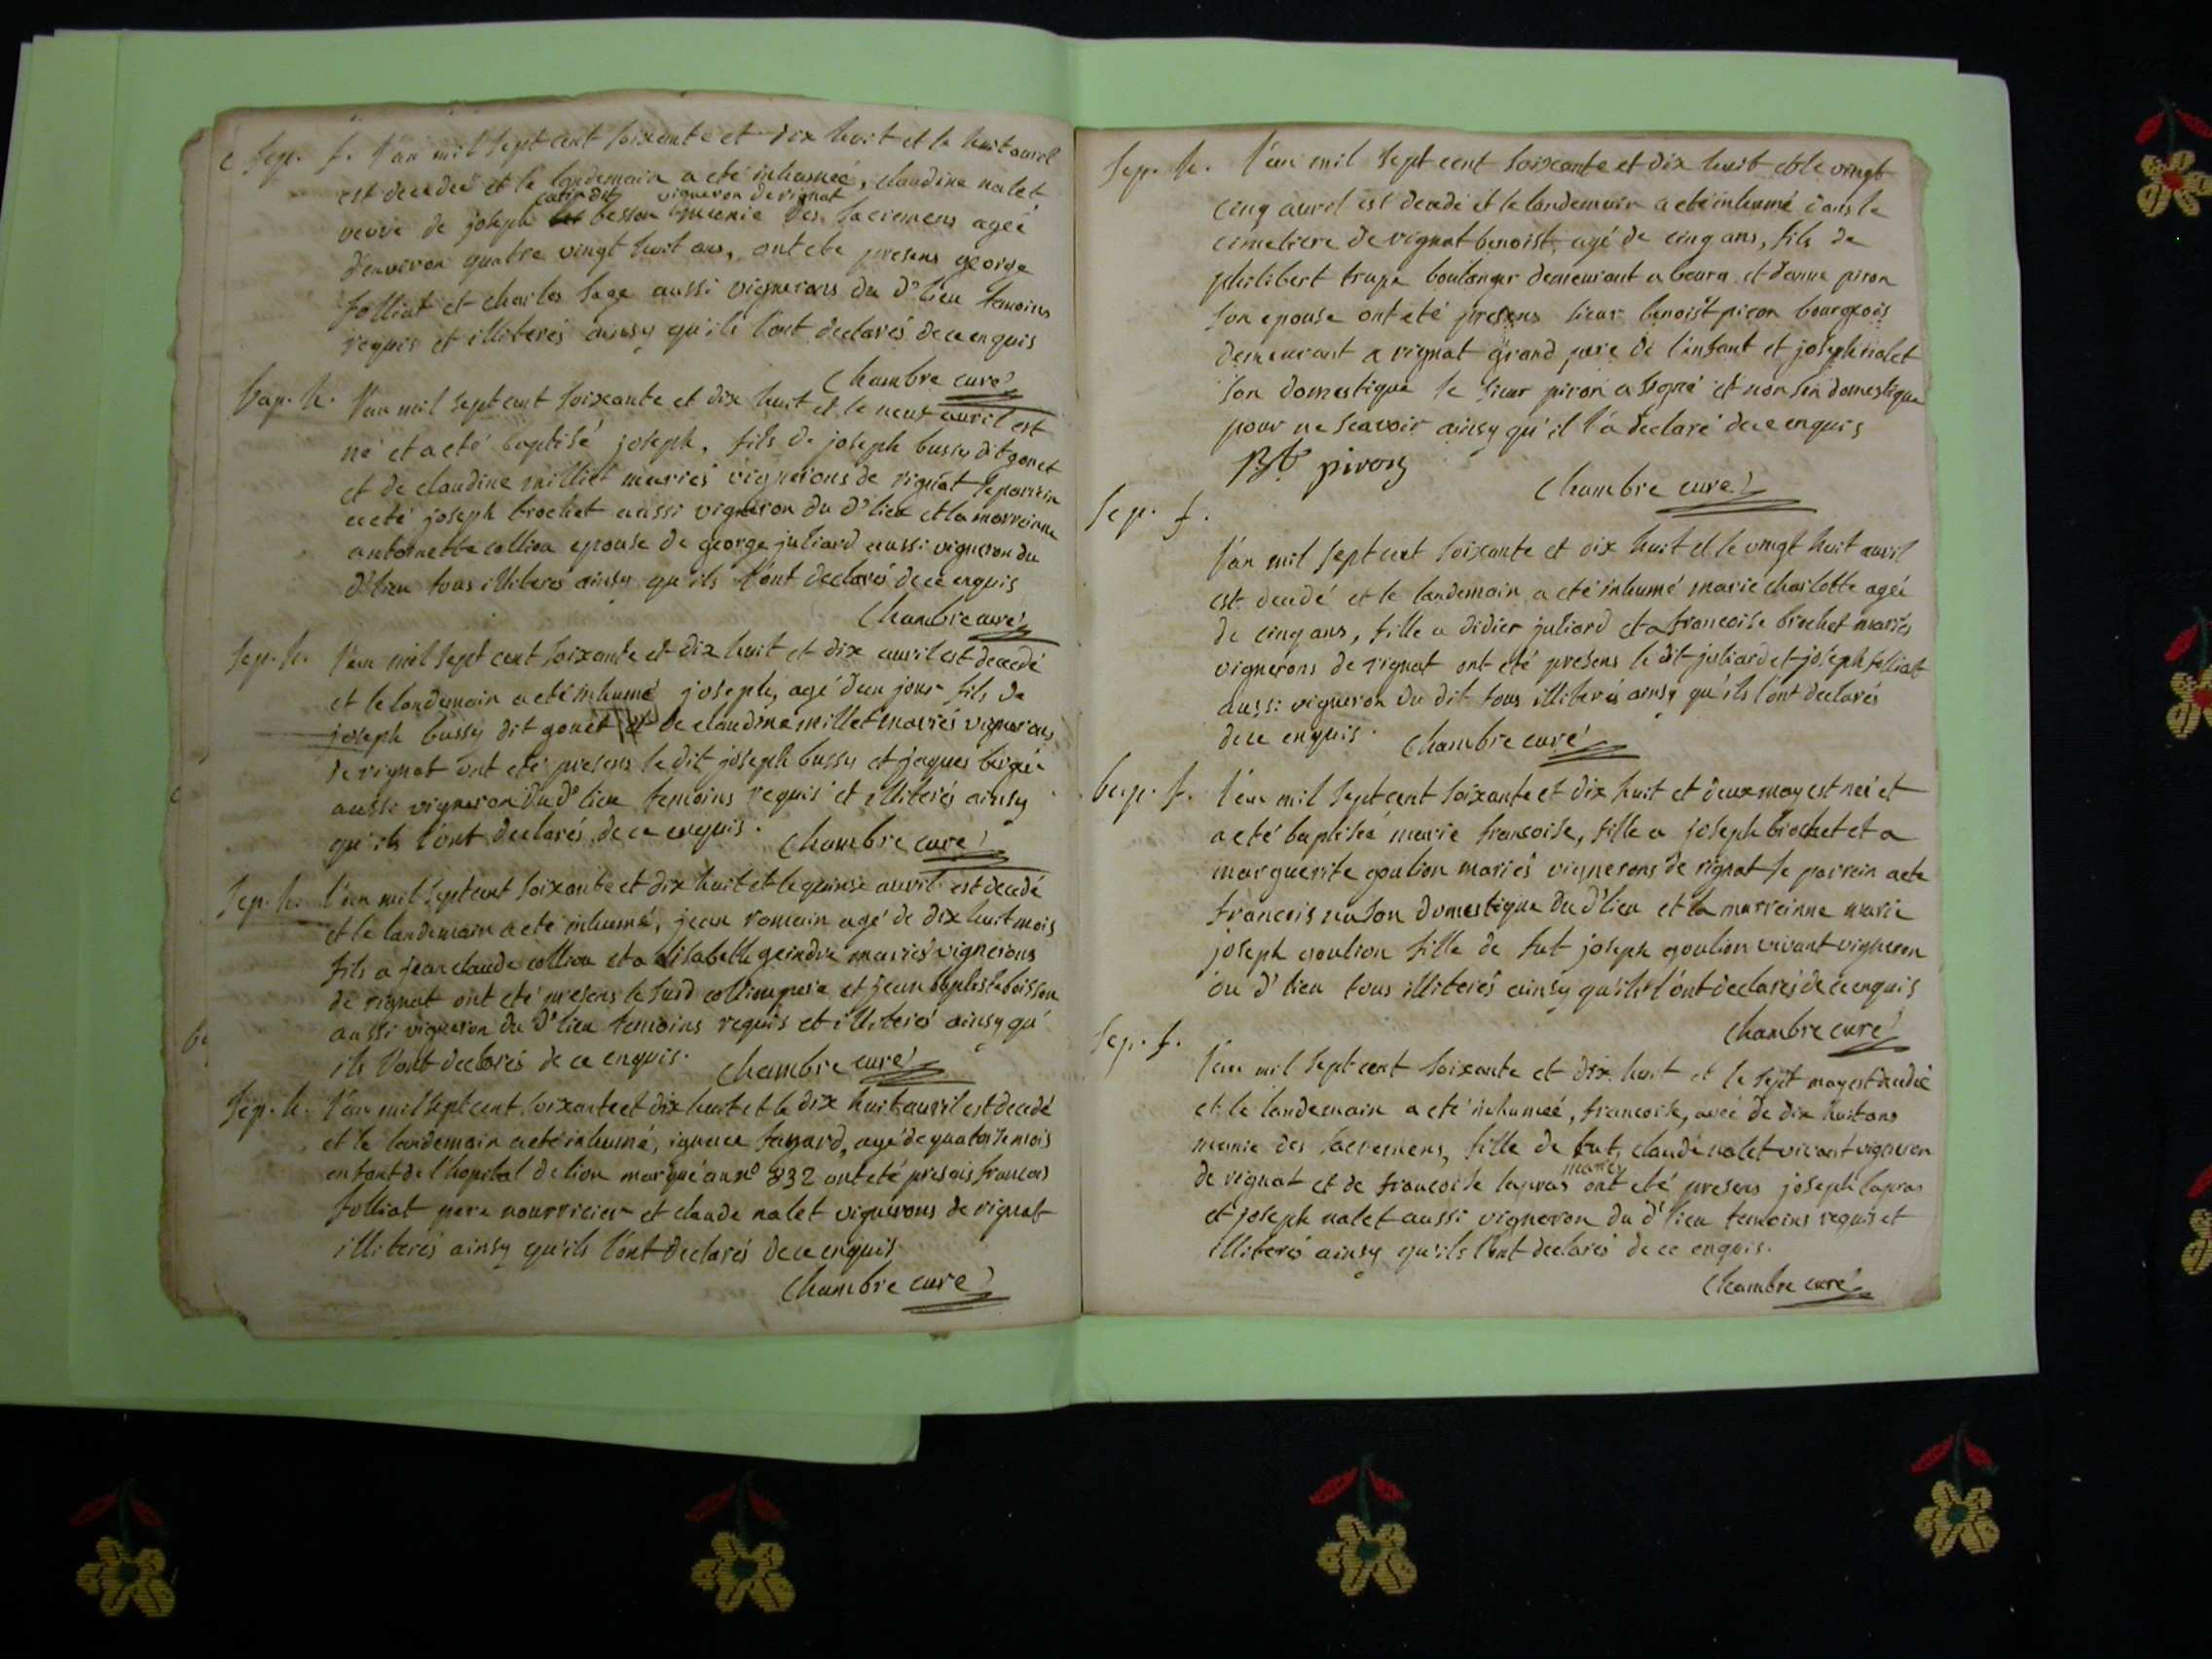 Sep. f. l'an mil sept cent soixante et dix huit et le huit avril
est decedeé et le landemain a eté inhumeé, claudine nalet
vigneron de rignat
veuve de joseph besson munie des sacremens ageé
d'environ quatre vingt huit ans, ont eté presens george
folliat et charles sage aussi vignerons du d' lieu temoins
requis et illiterés ainsy qu'ils l'ont declarés de ce enquis
Chambre curé
bap. h. l'an mil sept cent soixante et dix huit et le neuf avril est
né et a eté baptisé joseph, fils de joseph bussy dit gonet
et de claudine milliet mariés vignerons de rignat le parrein
a eté joseph brochet aussi vigneron du d' lieu et la marreinne
antoinette collion epouse de george juliard aussi vigneron du
d' lieu tous illiterés ainsy qu'ils l'ont declarés de ce enquis
Chambre curé
Sep. h. l'an mil sept cent soixante et dix huit et dix avril est decedé
et le landemain a eté inhumé joseph, agé d'un jour fils de
joseph bussy dit gonet et de claudine millet mariés vignerons
de rignat ont eté presens le dit joseph bussy et jaques
aussi vigneron du d' lieu temoins requis et illiterés ainsy
qu'ils l'ont declarés de ce enquis. Chambre curé
Sep. h. l'an mil sept cent soixante et dix huit et le quinse avril est decedé
et le landemain a eté inhumé, jean romain agé de dix huit mois
fils a jean claude collion et a elisabeth geindre mariés vignerons
de rignat ont eté presens le susd collion pere et jean baptiste boisson
aussi vigneron du d' lieu temoins requis et illiterés ainsy qu'
ils l'ont declarés de ce enquis. Chambre curé
Sep. h. l'an mil sept cent soixante et dix huit et le dix huit avril est decedé
et le landemain a eté inhumé, ignace fayard, agé de quatorse mois
enfant de l'hopital de lion marqué au n° 832 ont eté presens francois
folliat pere nourricier et claude nalet vignerons de rignat
illiterés ainsy qu'ils l'ont declarés de ce enquis.
Chambre curé
Sep. h. l'an mil sept cent soixante et dix huit et le vingt
cinq avril est decedé et le landemain a eté inhumé dans le
cimetiere de rignat benoist, agé de cinq ans, fils de
philibert trupe boulanger demeurant a bourg et d'anne piron
son epouse ont eté presens sieur benoist piron bourgeois
demeurant a rignat grand pere de l'enfant et joseph nalet
son domestique le sieur piron a signé et non son domestique
pour ne scavoir ainsy qu'il l'a declaré de ce enquis
Bt piron
Chambre curé
Sep. f.
l'an mil sept cent soixante et dix huit et le vingt huit avril
est decedé et le landemain a eté inhumé marie charlotte ageé
de cinq ans, fille a didier juliard et a francoise brochet mariés
vignerons de rignat ont eté presens le dit juliard et joseph folliat
aussi vigneron du dit tous illiterés ainsy qu'ils l'ont declarés
de ce enquis. Chambre curé
bap. f. l'an mil sept cent soixante et dix huit et deux may est neé et
a eté baptiseé marie francoise, fille a joseph brochet et a
marguerite goulion mariés vignerons de rignat le parrein a eté
francois nason domestique du d' lieu et la marreinne marie
joseph goulion fille de fut joseph goulion vivant vigneron
du d' lieu tous illiterés ainsy qu'ils l'ont declarés de ce enquis
Chambre curé
Sep. f.
l'an mil sept cent soixante et dix huit et le sept may est decedeé
et le landemain a eté inhumeé, francoise, ageé de dix huit ans
munie des sacremens, fille de fut claude nalet vivant vigneron
mariés
de rignat et de francoise lapras ont eté presens joseph lapras
et joseph nalet aussi vigneron du d' lieu temoins requis et
illiterés ainsy qu'ils l'ont declarés de ce enquis.
Chambre curé